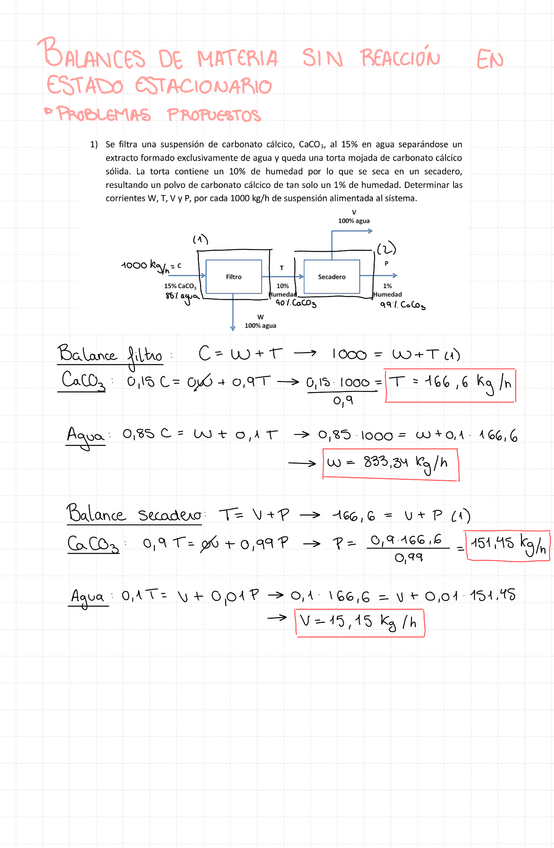 BALANCES DE MATERIA SIN REACCIÓN EN
ESTADO ESTACIONARIO
PROBLEMAS PROPUESTOS
1) Se filtra una suspensión de carbonato cálcico, CaCO₃, al 15% en agua separándose un
extracto formado exclusivamente de agua y queda una torta mojada de carbonato cálcico
sólida. La torta contiene un 10% de humedad por lo que se seca en un secadero,
resultando un polvo de carbonato cálcico de tan solo un 1% de humedad. Determinar las
corrientes W, T, V y P, por cada 1000 kg/h de suspensión alimentada al sistema.
V
100% agua
(1)
(2)
1000 kg/h = C
T
P
Filtro
Secadero
15% CaCO₃
10%
1%
Humedad
Humedad
85% agua
90% CaCO₃
99% CaCO₃
W
100% agua
Balance filtro: C = W + T → 1000 = W + T (1)
CaCO₃: 0,15 C = 0W + 0,9T → 0,15 · 1000 / 0,9 = T = 166,6 kg/h
Agua: 0,85 C = W + 0,1 T → 0,85 · 1000 = W + 0,1 · 166,6
→ W = 833,34 kg/h
Balance secadero: T = V + P → 166,6 = V + P (1)
CaCO₃: 0,9 T = 0V + 0,99 P → P = 0,9 · 166,6 / 0,99 = 151,45 kg/h
Agua: 0,1 T = V + 0,01 P → 0,1 · 166,6 = V + 0,01 · 151,45
→ V = 15,15 kg/h